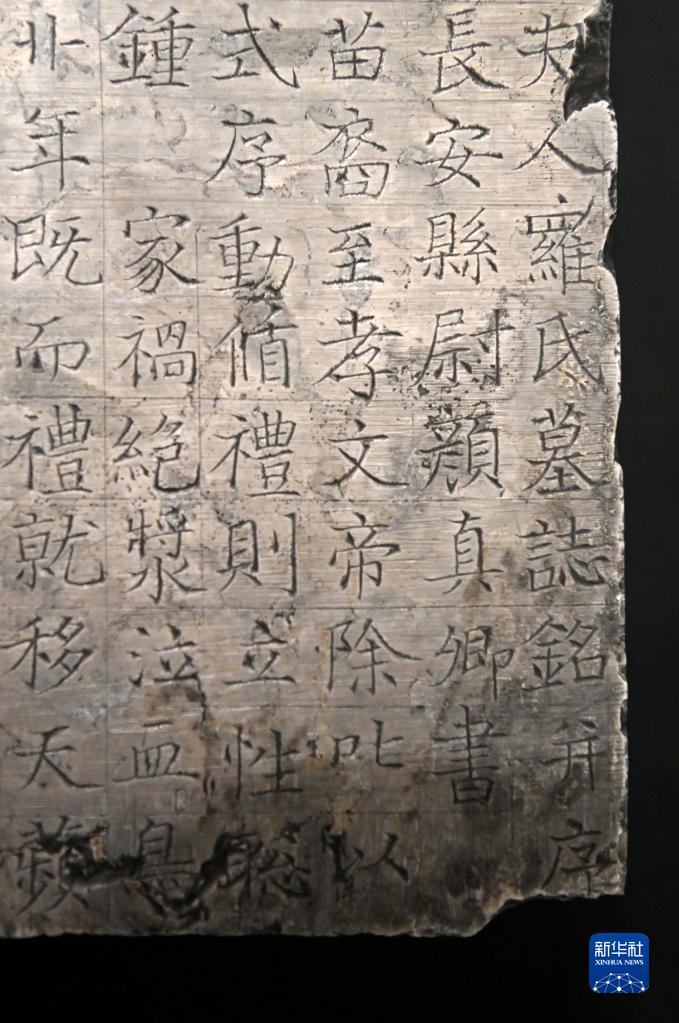 夫人羅氏墓誌銘并序
長安縣尉顏真卿書
苗裔至孝文帝除叱以
式序動偱禮則立性聡
鍾 家禍絶漿泣血
丱年既而禮就移天蘋
新华社
XINHUA NEWS